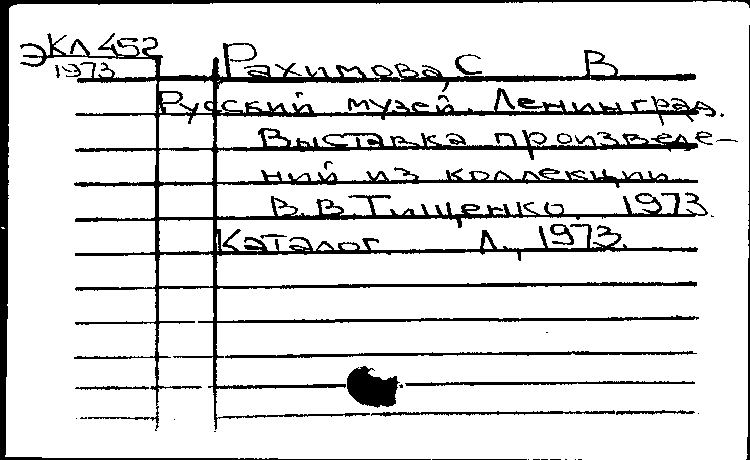 ЭКЛ 452
1973
Рахимова, С В
Русский музей. Ленинград.
Выставка произведе-
ний из коллекции
В.В.Тищенко. 1973
Каталог Л., 1973.